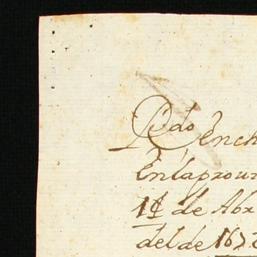 Pedo
Ench
Enlaprou
14 de Abr
del de 167